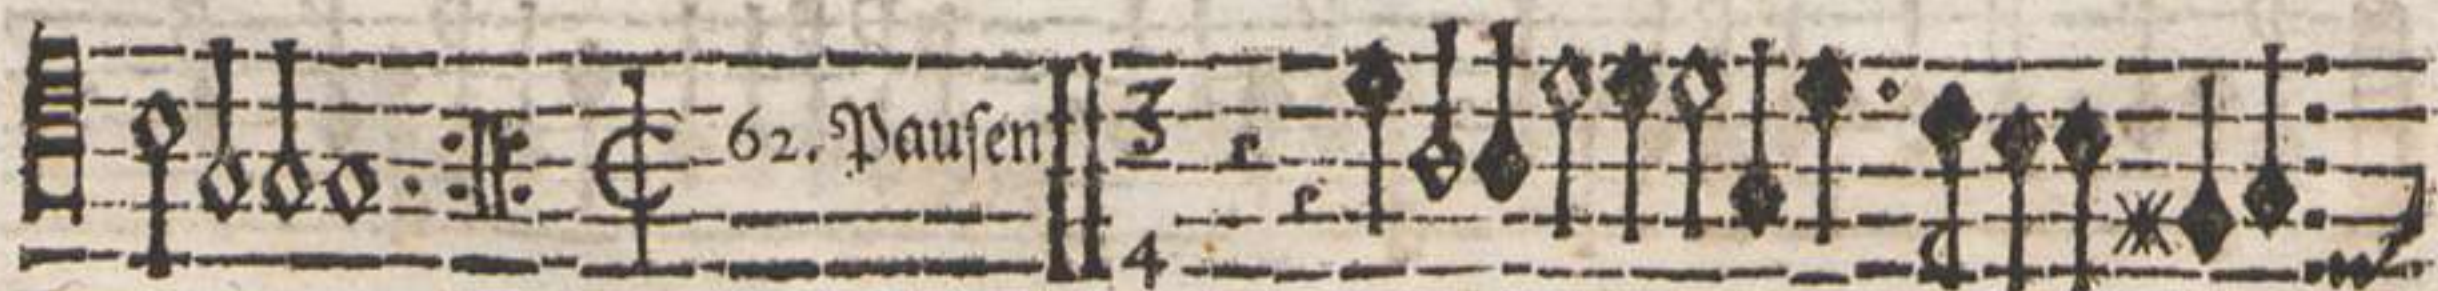 62. Pauſen
3
4